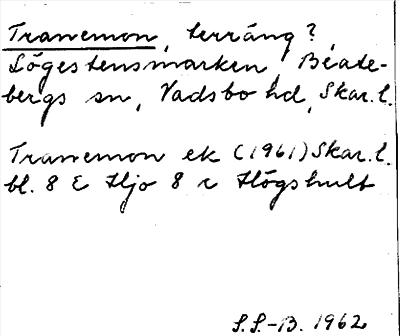 Tranemon, terräng?
Lögestensmarken, Beate-
bergs sn, Vadsbo hd, Skar. l.
Tranemon ek (1961) Skar. l.
bl. 8 E Hjo 8 c Högshult
S.S.-B. 1962